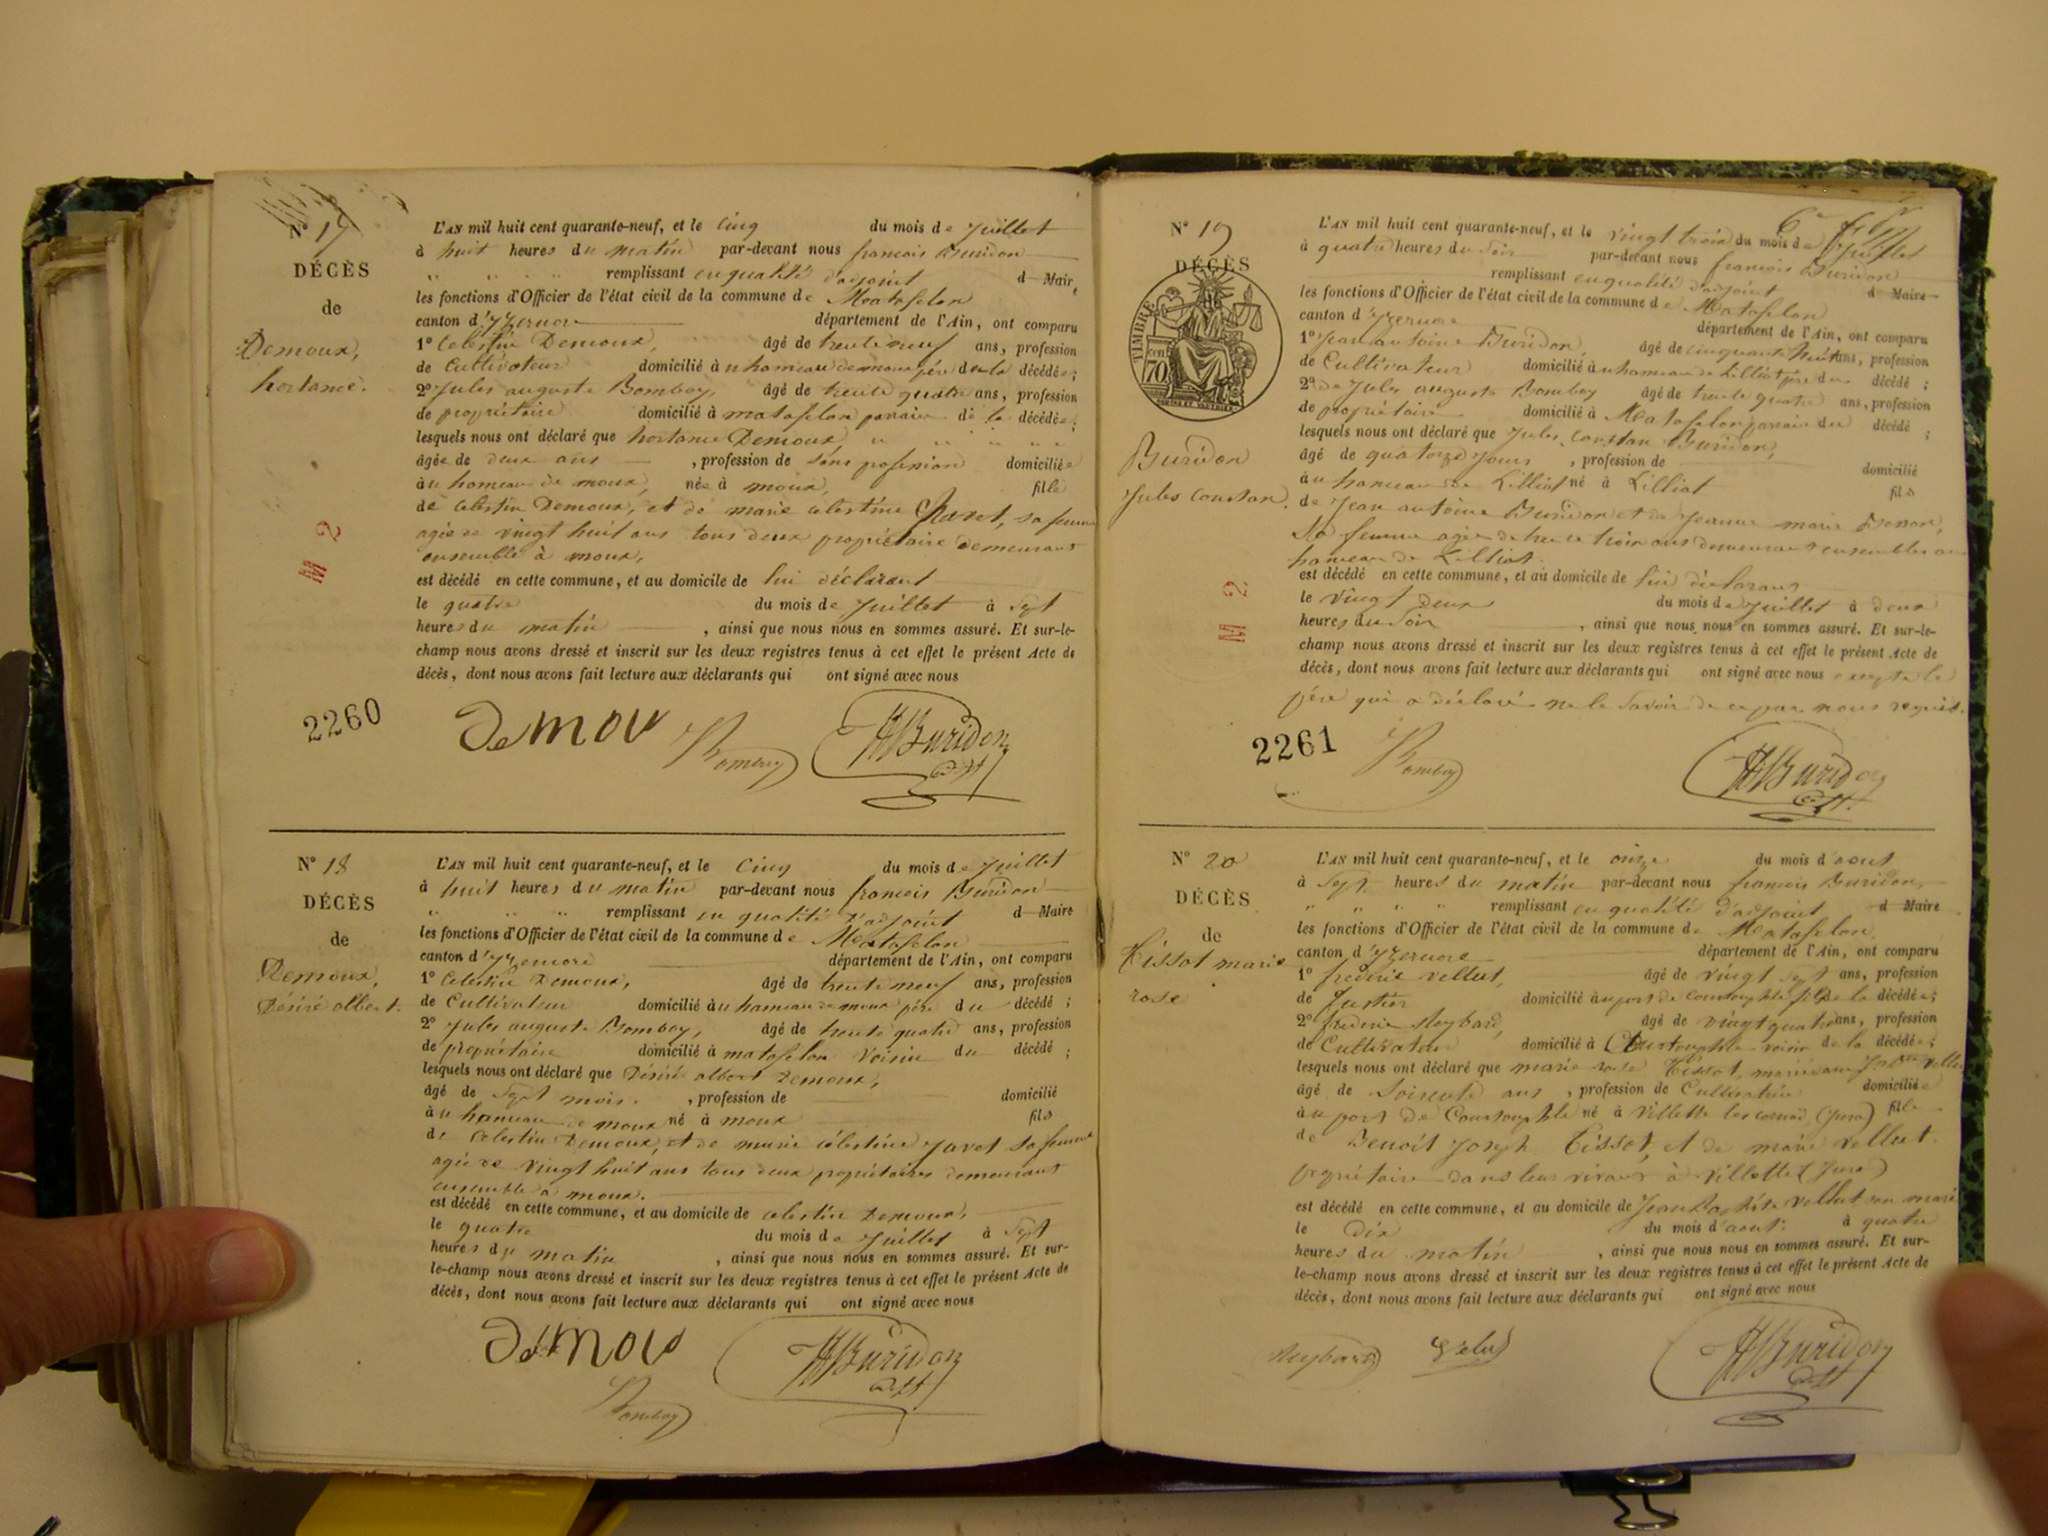 N° 17
DÉCÈS
de
Demoux,
hortance.
L'AN mil huit cent quarante-neuf, et le cinq du mois de Juillet
à huit heures du matin par-devant nous francois Buridon
remplissant en qualité d'adjoint d Maire
les fonctions d'Officier de l'état civil de la commune de Matafelon
canton d'Yzernore département de l'Ain, ont comparu
1° Celestin Demoux, âgé de trente neuf ans, profession
de Cultivateur domicilié à u hameau de moux père de la décédée;
2° Jules auguste Bomboy, âgé de trente quatre ans, profession
de propriétaire domicilié à matafelon parain de la décédée;
lesquels nous ont déclaré que hortance Demoux
âgée de deux ans, profession de sans profession domiciliée
à u hameau de moux, née à moux, fille
de Celestin Demoux, et de marie celestine Javet, sa femme
agée de vingt huit ans tous deux propriétaire demeurant
ensemble à moux,
est décédé en cette commune, et au domicile de lui déclarant
le quatre du mois de Juillet à Sept
heures du matin, ainsi que nous nous en sommes assuré. Et sur-le-
champ nous avons dressé et inscrit sur les deux registres tenus à cet effet le présent Acte de
décès, dont nous avons fait lecture aux déclarants qui ont signé avec nous
M 2
2260
Demou Bomboy Buridon
adjt
N° 18
DÉCÈS
de
Demoux,
Désiré albert.
L'AN mil huit cent quarante-neuf, et le cinq du mois de Juillet
à huit heures du matin par-devant nous francois Buridon
remplissant en qualité d'adjoint d Maire
les fonctions d'Officier de l'état civil de la commune de Matafelon
canton d'Yzernore département de l'Ain, ont comparu
1° Celestin Demoux, âgé de trente neuf ans, profession
de Cultivateur domicilié à u hameau de moux père du décédé;
2° Jules auguste Bomboy, âgé de trente quatre ans, profession
de propriétaire domicilié à matafelon voisin du décédé;
lesquels nous ont déclaré que Désiré albert Demoux,
âgé de Sept mois, profession de domicilié
à u hameau de moux né à moux fils
de Celestin Demoux, et de marie célestine Javet sa femme
agée de vingt huit ans tous deux propriétaires demeurant
ensemble à moux.
est décédé en cette commune, et au domicile de celestin Demoux,
le quatre du mois de Juillet à Sept
heures du matin, ainsi que nous nous en sommes assuré. Et sur-
le-champ nous avons dressé et inscrit sur les deux registres tenus à cet effet le présent Acte de
décès, dont nous avons fait lecture aux déclarants qui ont signé avec nous
Démou Buridon
adjt
Bomboy
N° 19
DÉCÈS
TIMBRE
cen
70
Buridon
Jules constan.
L'AN mil huit cent quarante-neuf, et le vingt trois du mois de Juillet
à quatre heures du Soir par-devant nous francois Buridon
remplissant en qualité d'adjoint d Maire
les fonctions d'Officier de l'état civil de la commune de Matafelon
canton d'Yzernore département de l'Ain, ont comparu
1° Jean antoine Buridon, âgé de cinquante huit ans, profession
de Cultivateur domicilié à u hameau de Lilliat père du décédé;
2° de Jules auguste Bomboy âgé de trente quatre ans, profession
de propriétaire domicilié à Matafelon parain du décédé;
lesquels nous ont déclaré que Jules constan Buridon,
âgé de quatorze Jours, profession de domicilié
à u hameau de Lilliat né à Lilliat fils
de Jean antoine Buridon et de Jeanne marie
Sa femme agée de trente trois ans demeurant ensembles au
hameau de Lilliat.
est décédé en cette commune, et au domicile de lui déclarant
le vingt deux du mois de Juillet à deux
heures du Soir, ainsi que nous nous en sommes assuré. Et sur-le-
champ nous avons dressé et inscrit sur les deux registres tenus à cet effet le présent Acte de
décès, dont nous avons fait lecture aux déclarants qui ont signé avec nous excepté le
père qui a déclaré ne le Savoir de ce par nous requis.
M 2
2261
Bomboy Buridon
adjt.
N° 20
DÉCÈS
de
Tissot marie
rose
L'AN mil huit cent quarante-neuf, et le onze du mois d'aout
à Sept heures du matin par-devant nous francois Buridon,
remplissant en qualité d'adjoint d Maire
les fonctions d'Officier de l'état civil de la commune de Matafelon
canton d'Yzernore département de l'Ain, ont comparu
1° frederic vellut, âgé de vingt sept ans, profession
de domicilié à u port de fils de la décédée;
2° frederic Meybard, âgé de vingt quatre ans, profession
de Cultivateur domicilié à voisin de la décédée;
lesquels nous ont déclaré que marie rose Tissot, mariée
âgé de Soixente ans, profession de Cultivatrice domiciliée
à u port de né à villette fille
de Benoit Joseph Tissot, et de marie vellut.
propriétaire dans leur vivant à villette (Jura)
est décédé en cette commune, et au domicile de Jean Baptiste vellut son mari
le dix du mois d'aout. à quatre
heures du matin, ainsi que nous nous en sommes assuré. Et sur-
le-champ nous avons dressé et inscrit sur les deux registres tenus à cet effet le présent Acte de
décès, dont nous avons fait lecture aux déclarants qui ont signé avec nous
Meybard Velut Buridon
adjt